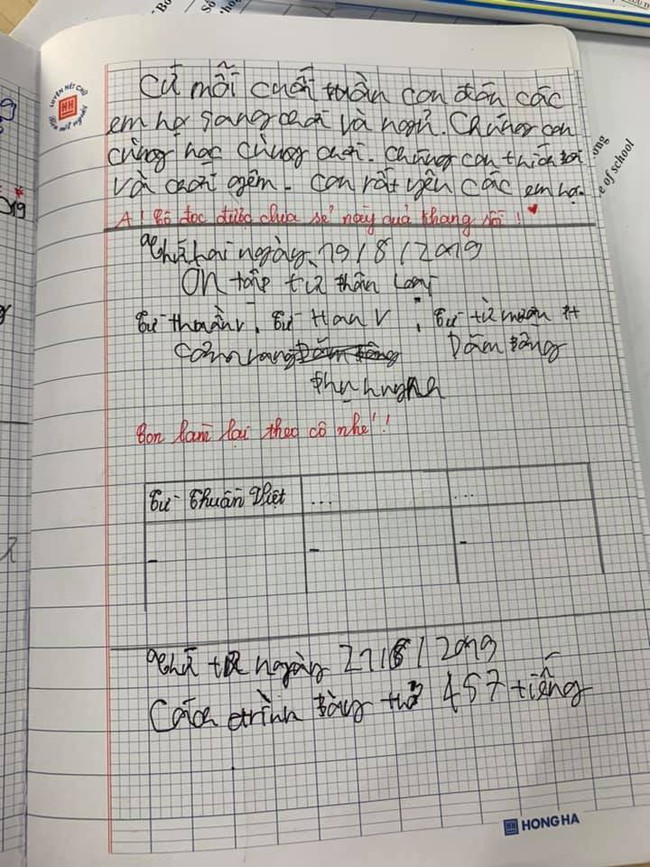 Cứ mỗi cuối tuần con đến các
em họ sang chơi và ngủ. Chúng con
cùng học cùng chơi. Chúng con thích bơi
và chơi gêm. Con rất yêu các em họ.
A! Cô đọc được chưa sẻ này quả thang rồi!
Thứ hai ngày 19/8/2019
Ôn tập từ phân loại
Từ thuần V, Từ Han V, Từ từ mượn
Dấm bằng
phụ huynh
Con làm lại theo cô nhé!!
Từ Thuần Việt ... ...
- - -
Thứ tư ngày 21/8/2019
Cách trình bày thơ 4 5 7 tiếng
HONG HA
e of school